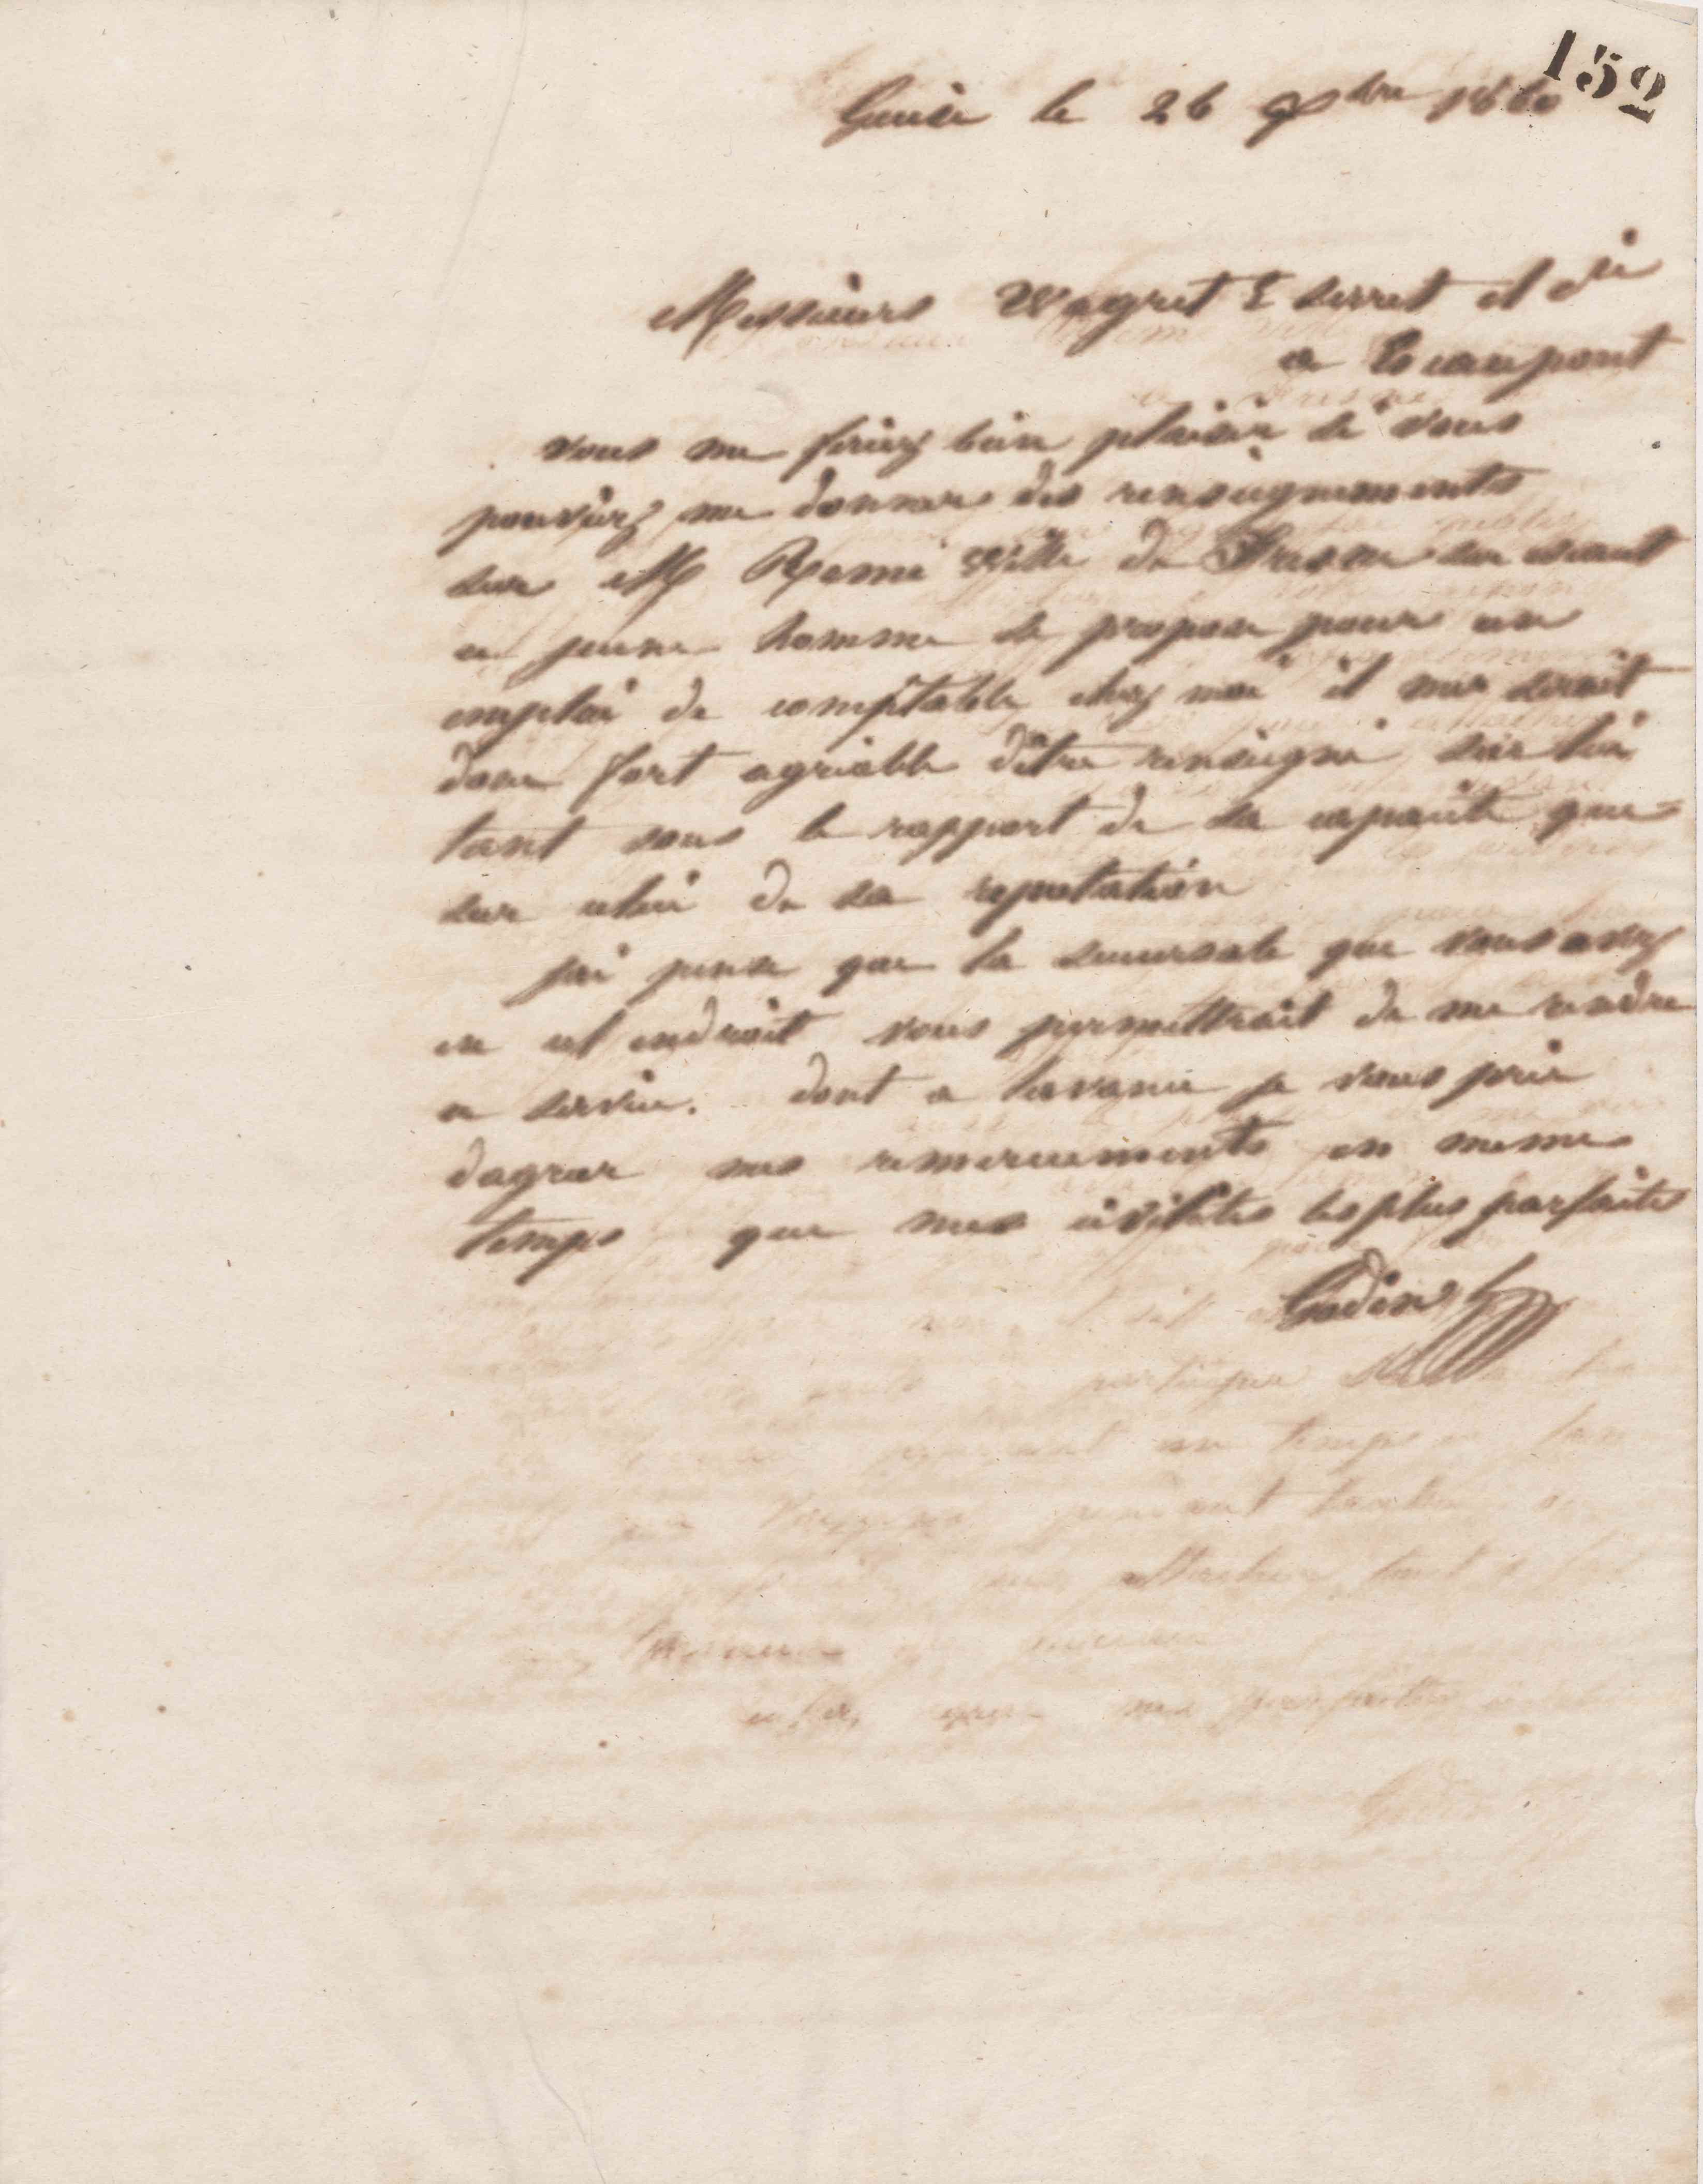 152
Guise le 26 9bre 1860
Messieurs Wagret & Serret et Cie
a Escaupont
vous me feriez bien plaisir si vous
pouviez me donner des renseignements
sur M Remi Ville de Fresne sur escaut
ce jeune homme se propose pour un
emploi de comptable chez moi il me serait
donc fort agréable d'être renseigné sur lui
tant sous le rapport de sa capacité que
sur celui de sa reputation
jai pensé que la succursale que vous avez
en cet endroit vous permettrait de me rendre
ce service. dont a lavance je vous prie
dagreer mes remerciements en meme
temps que mes civilités les plus parfaites
Godin